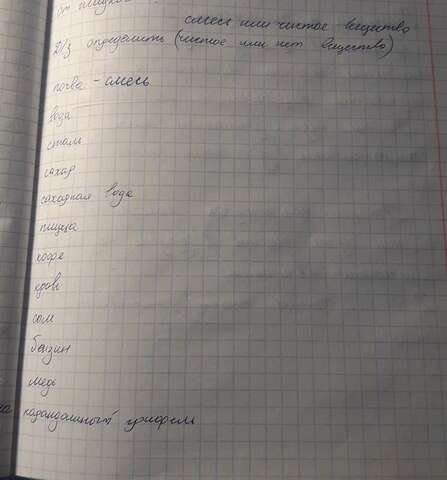 смесь или чистое вещество
Д/з определить (чистое или нет вещество)
почва - смесь
вода
сталь
сахар
сахарная вода
пицца
кофе
кровь
бензин
медь